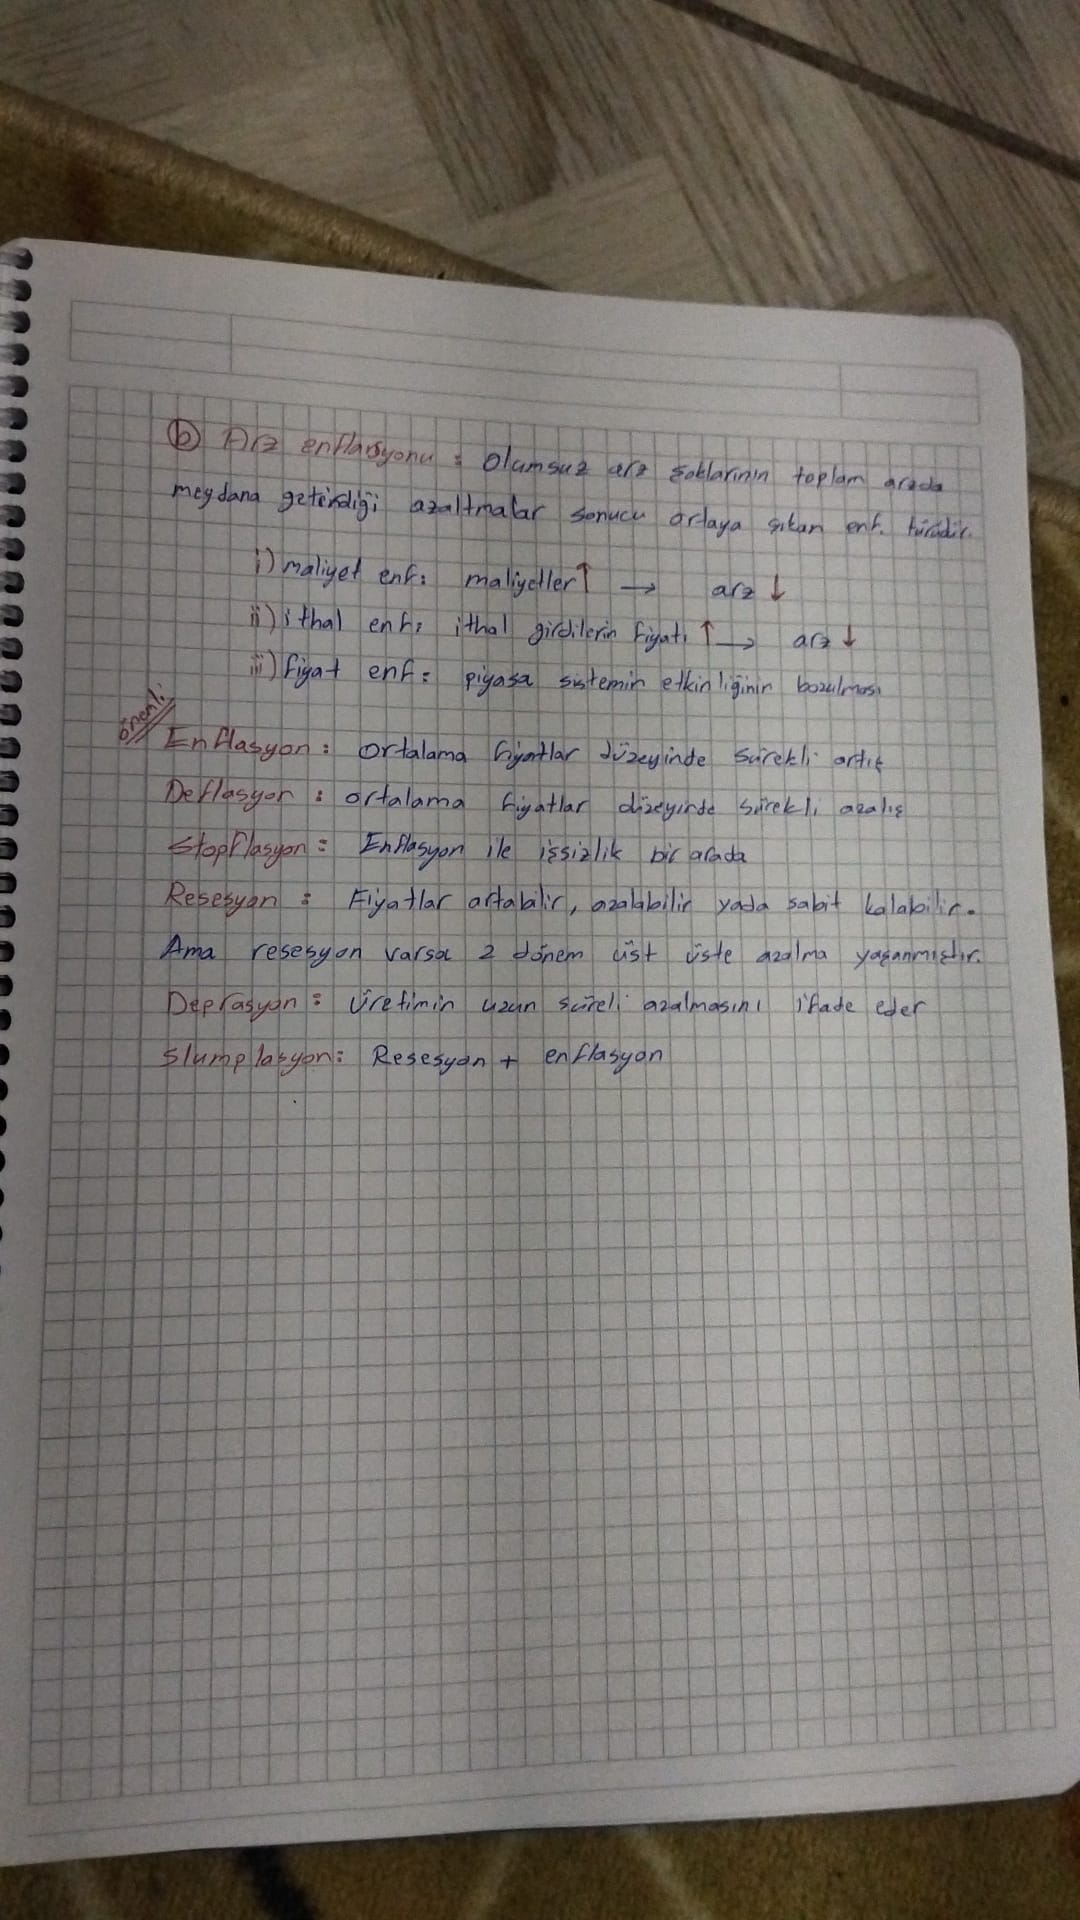 b) Arz enflasyonu : Olumsuz arz şoklarının toplam arzda
meydana getirdiği azaltmalar sonucu ortaya çıkan enf. türüdür.
i) maliyet enf: maliyetler ↑ → arz ↓
ii) ithal enf: ithal girdilerin fiyatı ↑ → arz ↓
iii) fiyat enf: piyasa sistemin etkinliğinin bozulması
önemli
Enflasyon : Ortalama fiyatlar düzeyinde sürekli artış
Deflasyon : ortalama fiyatlar düzeyinde sürekli azalış
Stopflasyon : Enflasyon ile işsizlik bir arada
Resesyon : Fiyatlar artabilir, azalabilir yada sabit kalabilir.
Ama resesyon varsa 2 dönem üst üste azalma yaşanmıştır.
Deprasyon : Üretimin uzun süreli azalmasını ifade eder
Slumplasyon : Resesyon + enflasyon